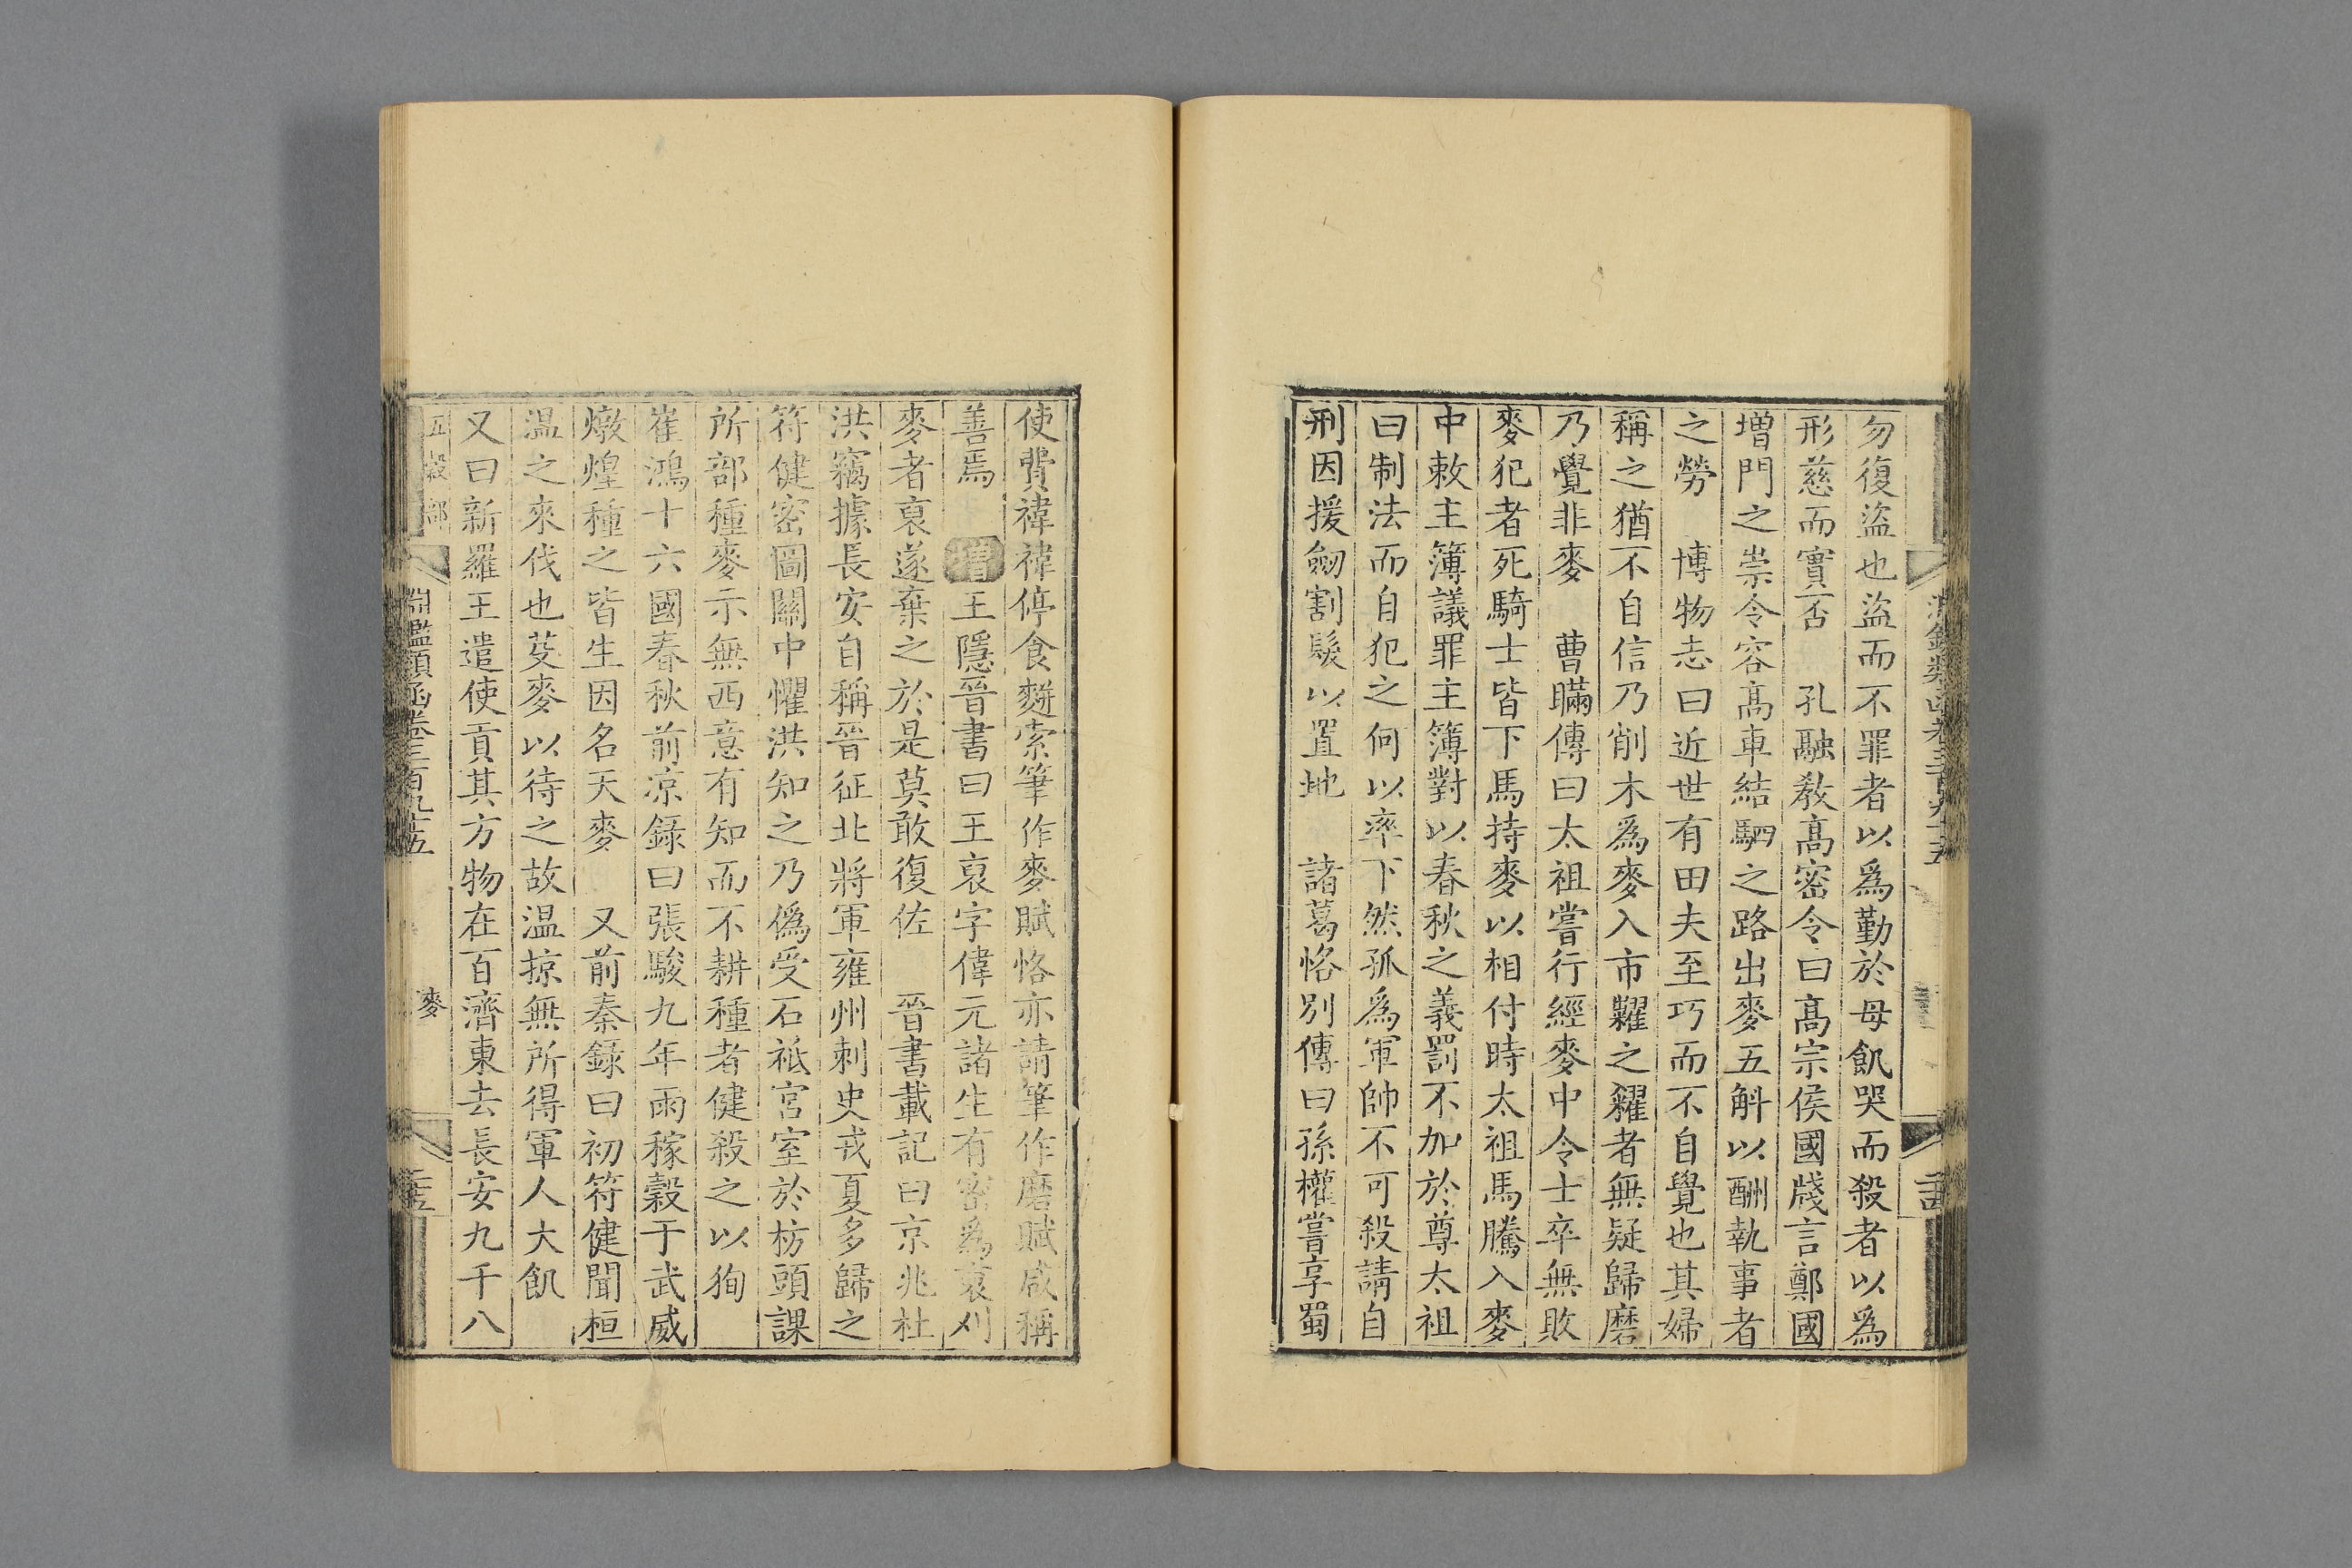 勿復盜也盜而不罪者以爲勤於母飢哭而殺者以爲
形慈而實否　孔融教髙密令曰髙宗侯國牋言鄭國
增門之崇令容髙車結駟之路出麥五斛以酬執事者
之勞　博物志曰近世有田夫至巧而不自覺也其婦
稱之猶不自信乃削木爲麥入市糶之糴者無疑歸磨
乃覺非麥　曹瞞傳曰太祖嘗行經麥中令士卒無敗
麥犯者死騎士皆下馬持麥以相付時太祖馬騰入麥
中敕主簿議罪主簿對以春秋之義罰不加於尊太祖
曰制法而自犯之何以率下然孤爲軍帥不可殺請自
刑因援劒割髮以置地　諸葛恪別傳曰孫權嘗享蜀
使費禕禕停食麪索筆作麥賦恪亦請筆作磨賦咸稱
善焉　增王隱晉書曰王裒字偉元諸生有密爲裒刈
麥者裒遂棄之於是莫敢復佐　晉書載記曰京兆杜
洪竊據長安自稱晉征北將軍雍州刺史戎夏多歸之
符健密圖關中懼洪知之乃僞受石祗宮室於枋頭課
所部種麥示無西意有知而不耕種者健殺之以狥
崔鴻十六國春秋前凉録曰張駿九年雨稼穀于武威
燉煌種之皆生因名天麥　又前秦録曰初符健聞桓
温之來伐也芟麥以待之故温掠無所得軍人大飢
又曰新羅王遣使貢其方物在百濟東去長安九千八
五穀部
淵鑑類函卷三百九十五
麥
二十五